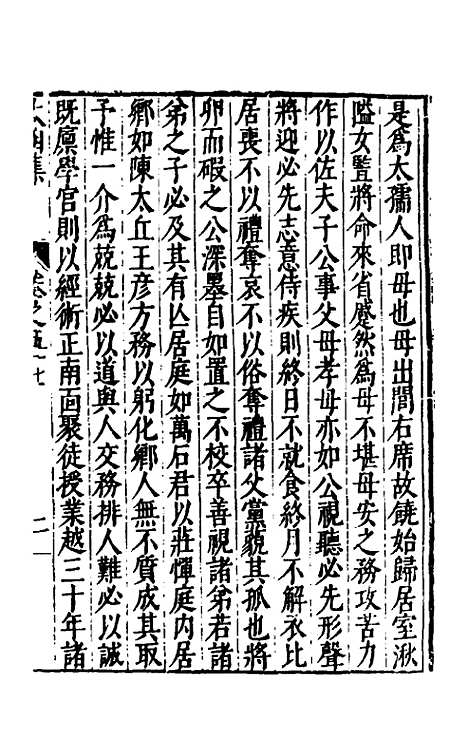 是爲太孺人卽母也母出閭右席故饒始歸居室湫
隘女豎將命來省蹙然爲母不堪母安之務攻苦力
作以佐夫子公事父母孝母亦如公視聽必先形聲
將迎必先志意侍疾則終日不就食終月不解衣比
居喪不以禮奪哀不以俗奪禮諸父黨藐其孤也將
卵而碬之公深墨自如置之不校卒善視諸弟若諸
弟之子必及其有亾居庭如萬石君以莊惲庭內居
鄉如陳太丘王彦方務以躬化鄉人無不質成其取
予惟一介爲兢兢必以道與人交務排人難必以誠
旣廪學官則以經術正南面聚徒授業越三十年諸
太函集
卷之五十七
二